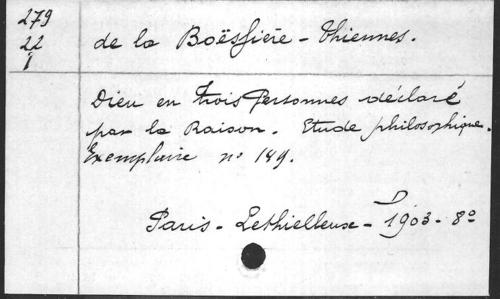 279
22
1
de la Boëssière - Thiennes.
Dieu en trois Personnes déclaré
par la Raison. Etude philosophique.
Exemplaire n° 149.
Paris - Lethielleux - 1903 - 8°